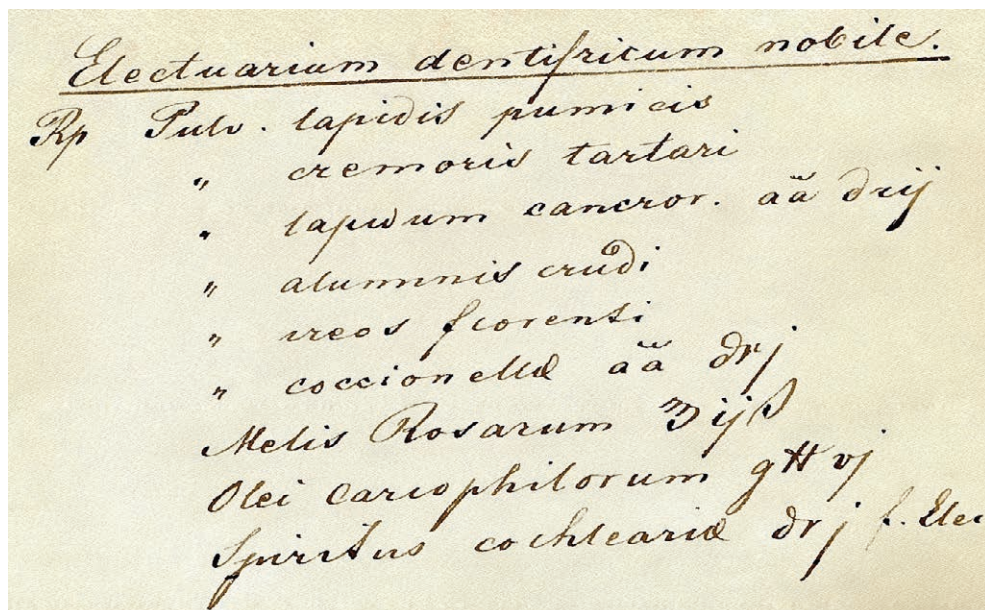 Electuarium dentifricum nobile.
Rp Pulv. lapidis pumicis
„ cremoris tartari
„ lapidum cancror. aã drij
„ aluminis crudi
„ ireos florenti
„ coccionellæ aã drj
Melis Rosarum ℥ijß
Olei cariophilorum gtt vj
Spiritus cochleariæ drj f. Elec